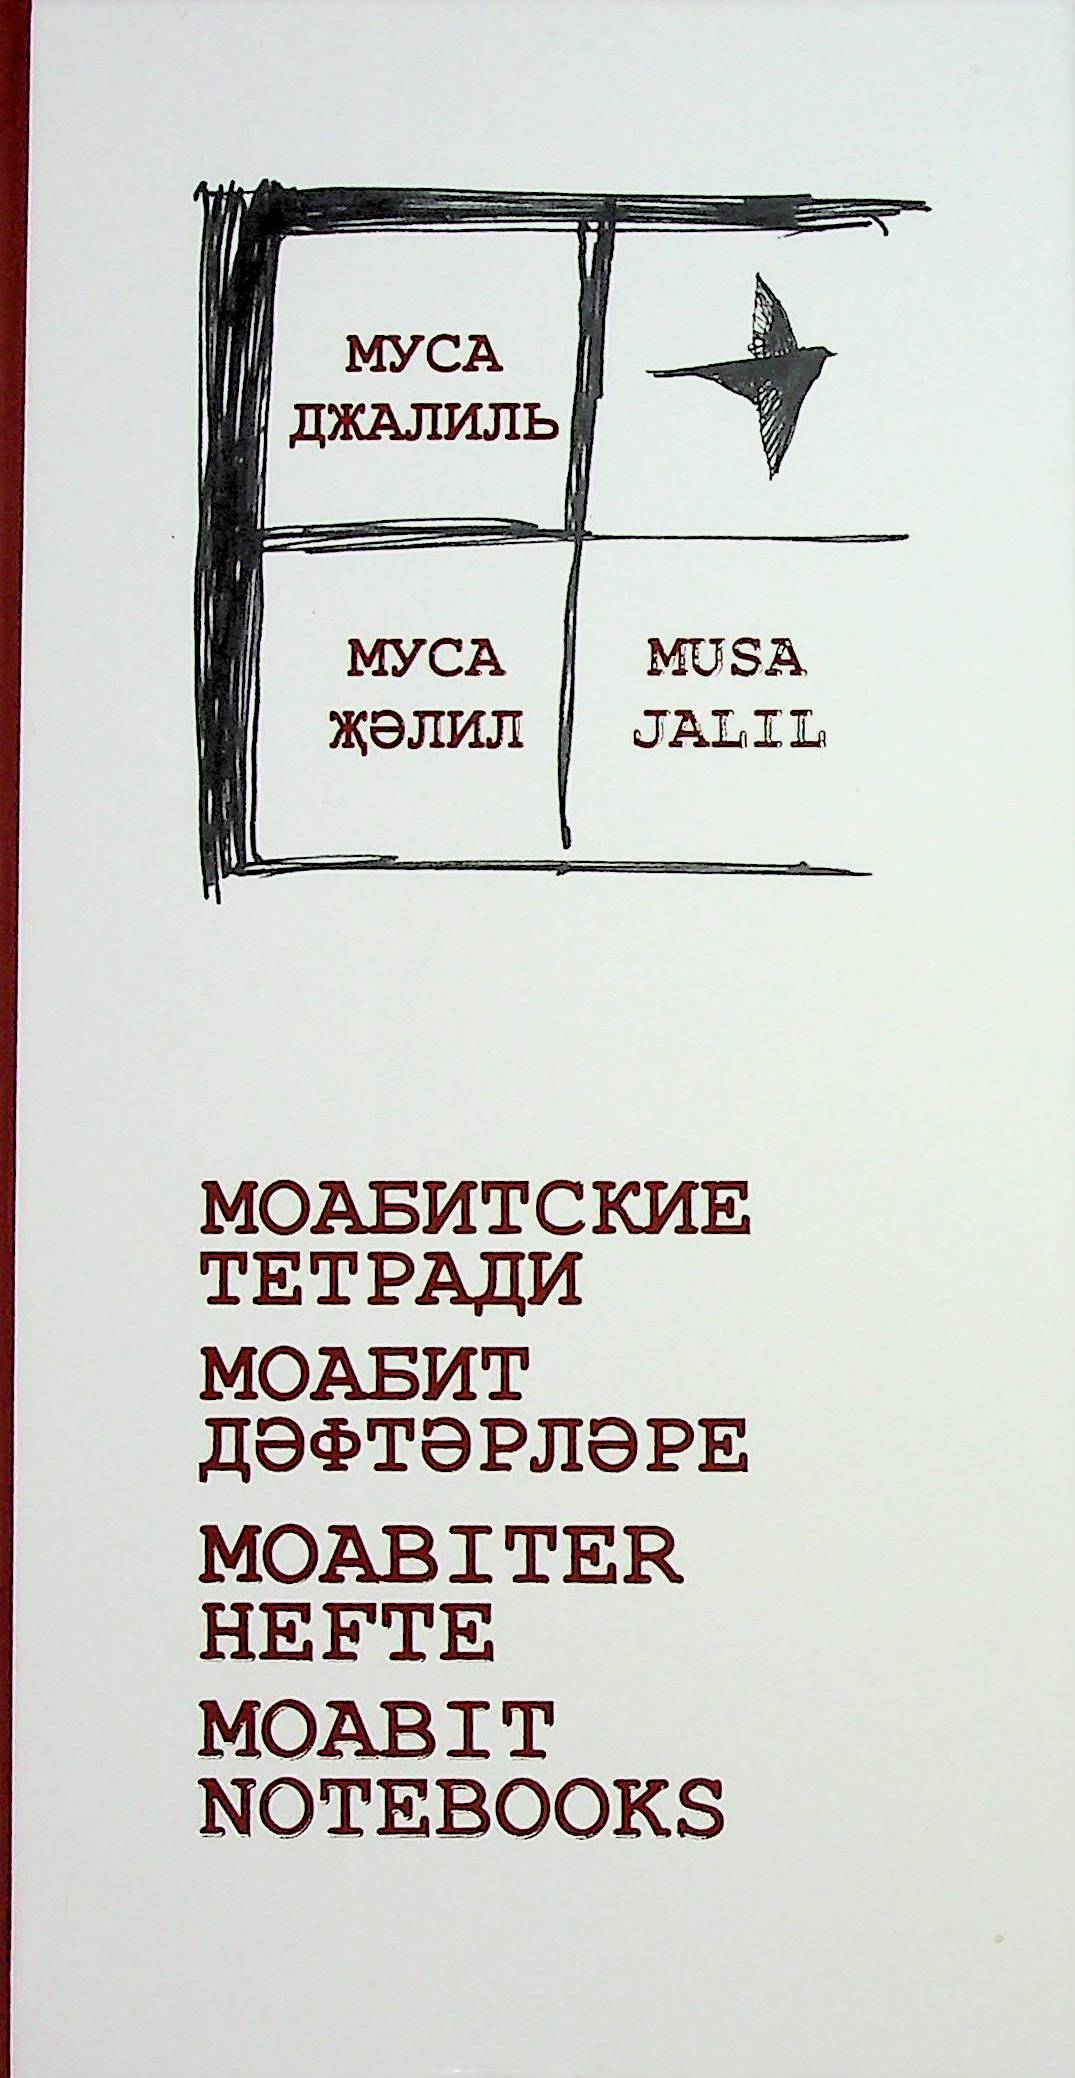 МУСА
ДЖАЛИЛЬ
МУСА
ҖӘЛИЛ
MUSA
JALIL
МОАБИТСКИЕ
ТЕТРАДИ
МОАБИТ
ДӘФТӘРЛӘРЕ
MOABITER
HEFTE
MOABIT
NOTEBOOKS